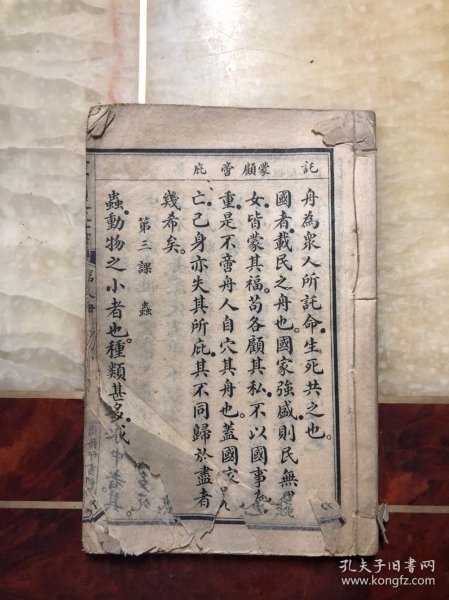 託 蒙 顧 啻 庇
舟為衆人所託命生死共之也。
國者載民之舟也。國家強盛則民無
女皆蒙其福。苟各顧其私不以國事為
重是不啻舟人自穴其舟也。蓋國家
亡己身亦失其所庇其不同歸於盡者
幾希矣。
第三課 蟲
蟲動物之小者也。種類甚多。或
孔夫子旧书网
www.kongfz.com